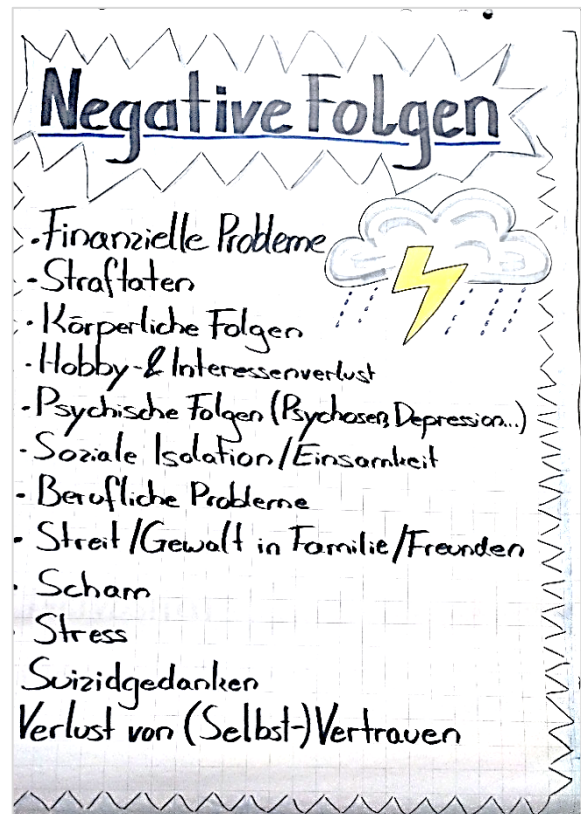 Negative Folgen
· Finanzielle Probleme
- Straftaten
· Körperliche Folgen
· Hobby- & Interessenverlust
- Psychische Folgen (Psychosen, Depression...)
- Soziale Isolation/Einsamkeit
- Berufliche Probleme
· Streit/Gewalt in Familie/Freunden
· Scham
· Stress
Suizidgedanken
Verlust von (Selbst-)Vertrauen